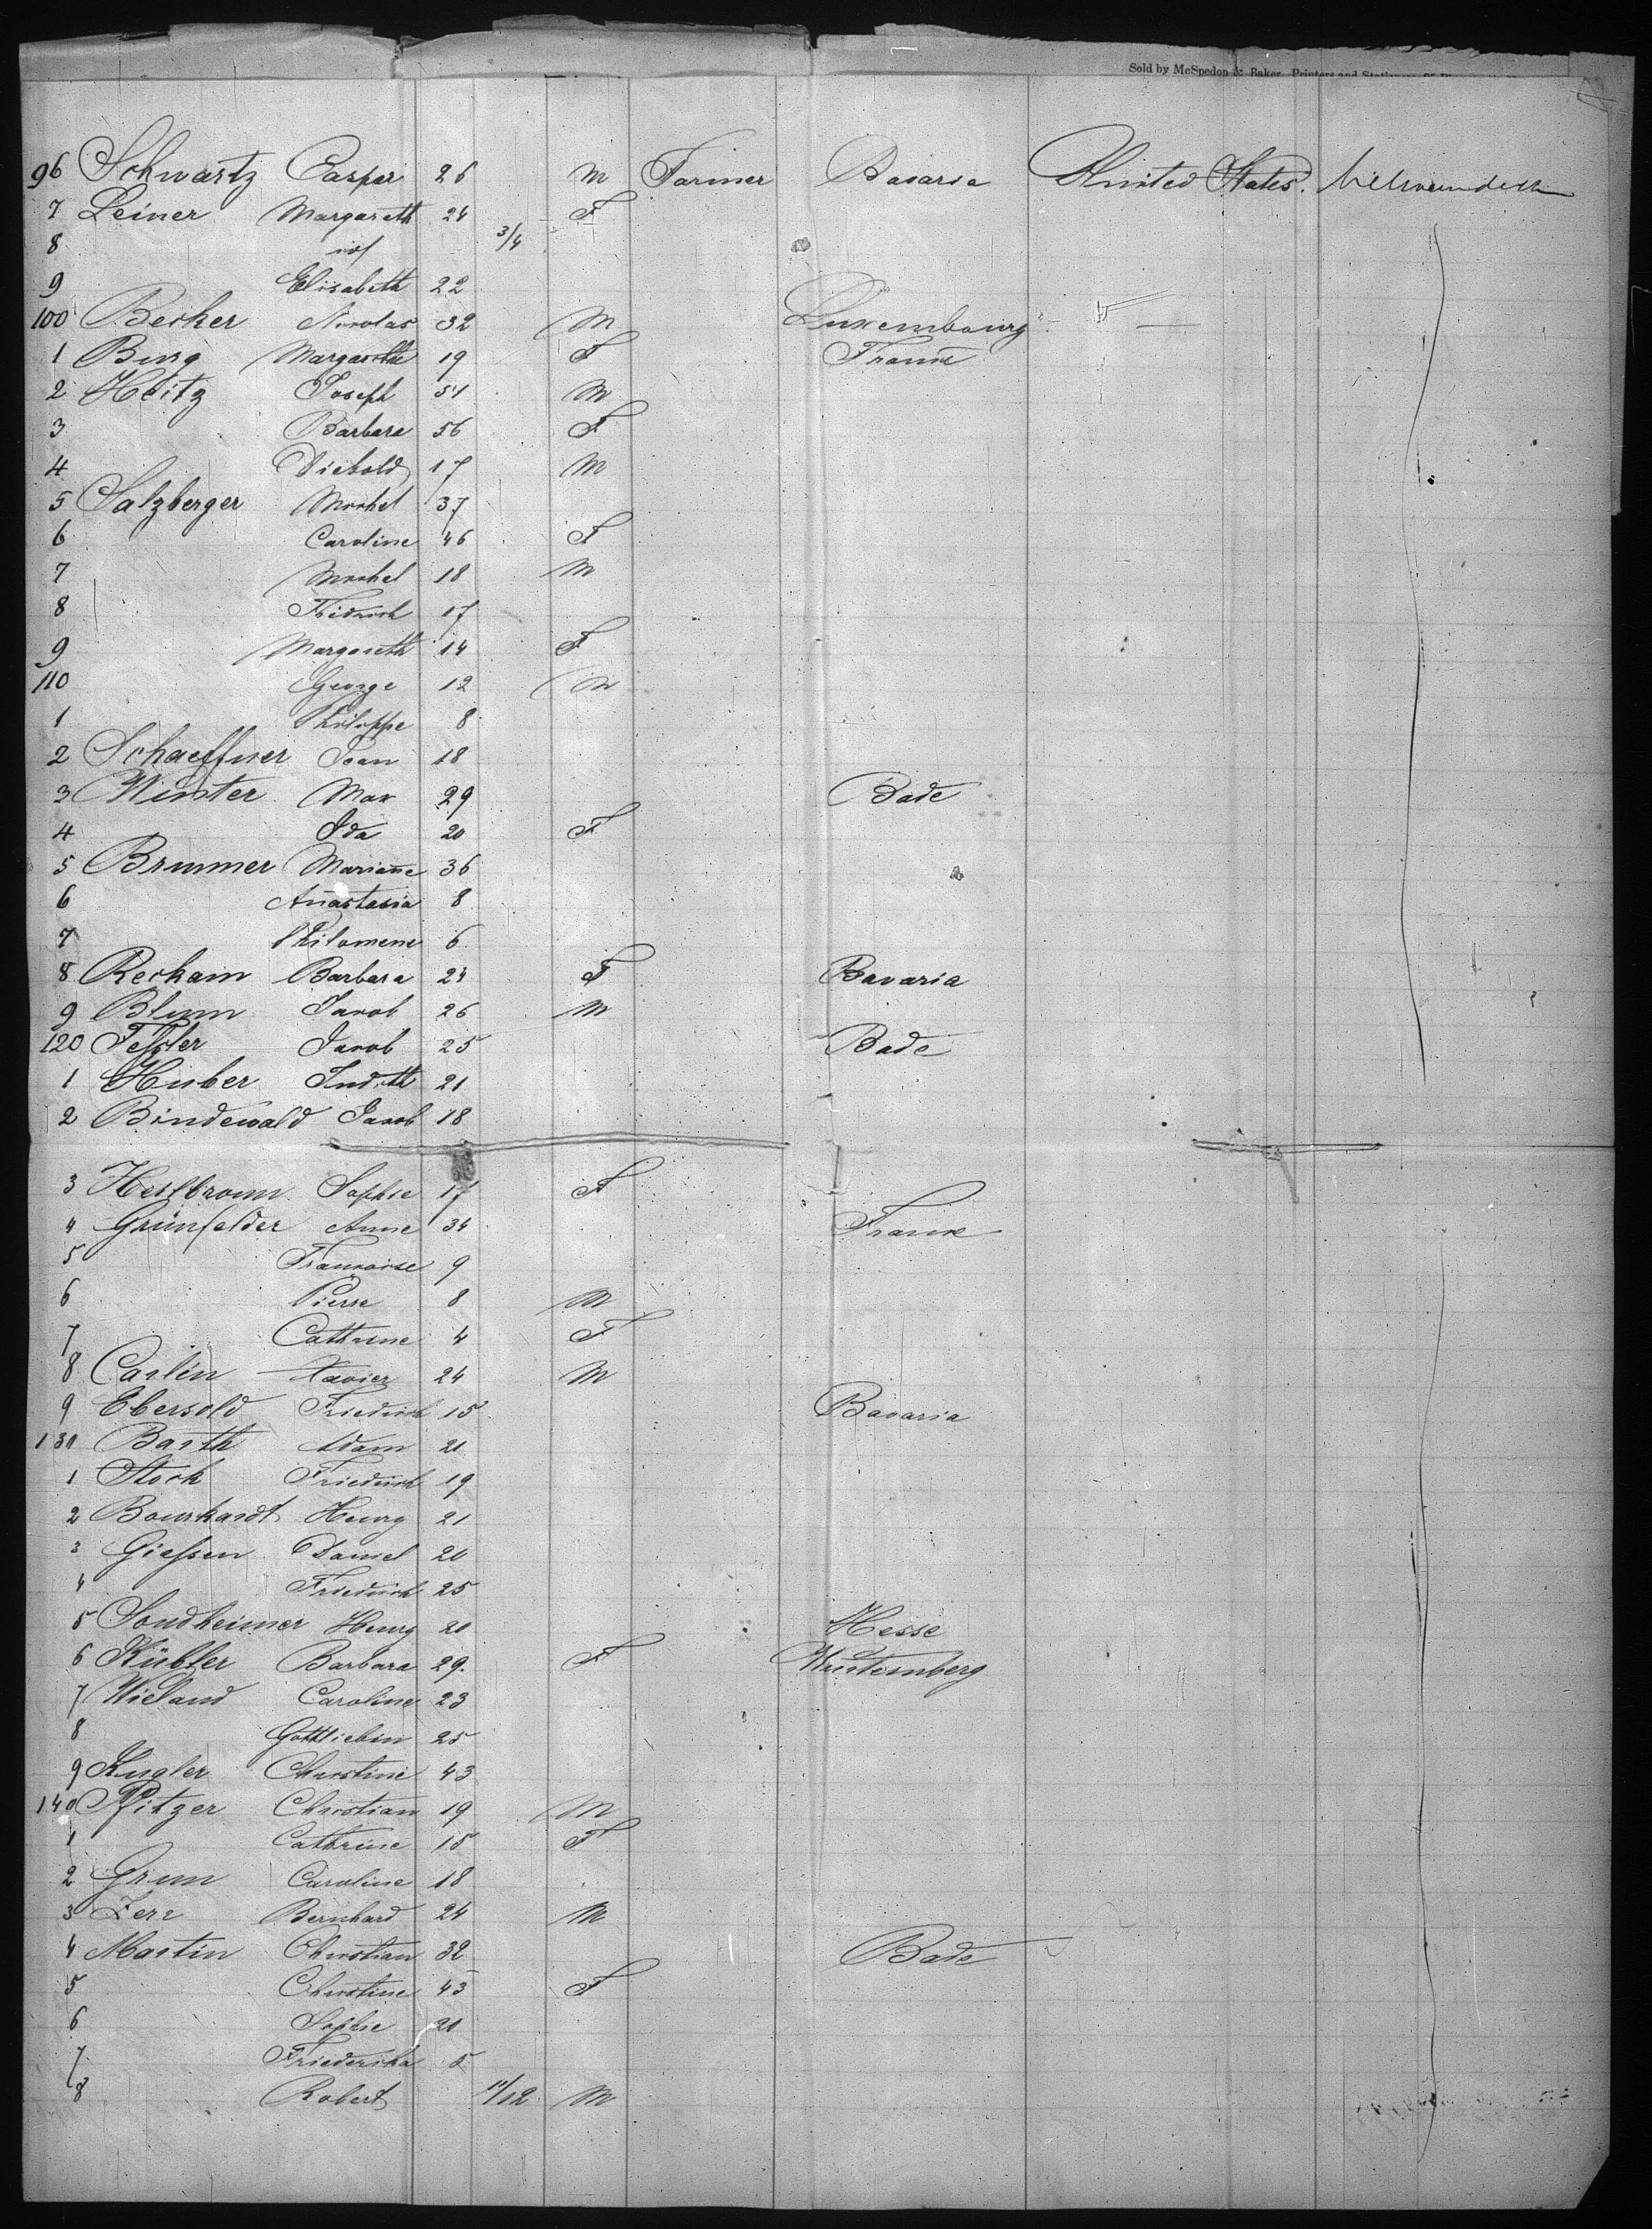 Sold by McSpedon & Baker, Printers and
96 Schwartz Caspar 26 M Farmer Bavaria United States.
7 Leiner Margareth 24 F
8 inf 3/4
9 Elisabeth 22
100 Becker Nicolas 32 M Luxembourg
1 Burg Margarethe 19 F France
2 Heitz Joseph 54 M
3 Barbara 56 F
4 Diebold 17 M
5 Salzberger Michel 37
6 Caroline 46 F
7 Michel 18 M
8 Friedrich 17
9 Margareth 14 F
110 George 12 M
1 Philippe 8
2 Schaeffner Jean 18
3 Winter Max 29 Bade
4 Ida 20 F
5 Brunner Marianne 36
6 Anastasia 8
7 Philomene 6
8 Recham Barbara 24 F Bavaria
9 Blum Jacob 26 M
120 Fessler Jacob 25 Bade
1 Huber Judith 21
2 Bindewald Jacob 18
3 Heilbronn Sophie 17 F
4 Grünfelder Anne 34 France
5 Francoise 9
6 Pierre 8 M
7 Cathrine 4 F
8 Carlin Xavier 24 M
9 Ebersold Friedrich 15 Bavaria
130 Barth Adam 21
1 Stock Friedrich 19
2 Bourkardt Henry 21
3 Giessen Daniel 20
4 Friedrich 25
5 Sondheimer Henry 20 Hesse
6 Kübler Barbara 29 F Wurtemberg
7 Wieland Caroline 23
8 Gottliebin 25
9 Kugler Christine 43
140 Pfitzer Christian 19 M
1 Cathrine 15 F
2 Grun Caroline 18
3 Zerr Bernhard 24 M
4 Martin Christian 32 Bade
5 Christine 43 F
6 Sophie 20
7 Friederika 5
8 Robert 11/12 M